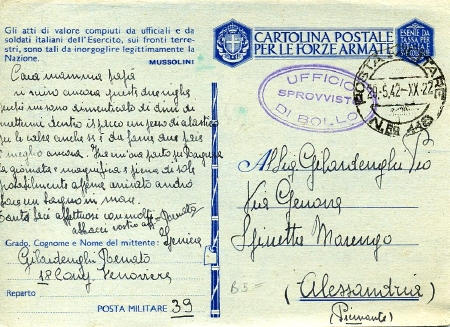 Gli atti di valore compiuti da ufficiali e da
soldati italiani dell'Esercito, sui fronti terre-
stri, sono tali da inorgoglire legittimamente la
Nazione.
MUSSOLINI
Cara mamma papà
vi invio ancora queste due righe
mi sono dimenticato di dirvi di
mettermi dentro il pacco un pezzo di elastico
per le calze anche se
è meglio ancora.
la giornata è magnifica e piena di sole
probabilmente appena arrivato andrò
a fare un bagno in mare.
Tanti baci affettuosi con molti
abbacci vostro aff. Renato
Grado, Cognome e Nome del mittente:
Gilardenghi Renato
18 Comp.
Reparto
POSTA MILITARE 39
CARTOLINA POSTALE
PER LE FORZE ARMATE
ESENTE DA
TASSA PER
L'ITALIA E
UFFICIO
SPROVVISTO
DI BOLLO
POSTA MILITARE
29-5-42-XX-22
Al Sig. Gilardenghi Pio
Via Genova
Spinetta Marengo
(Alessandria)
(Piemonte)